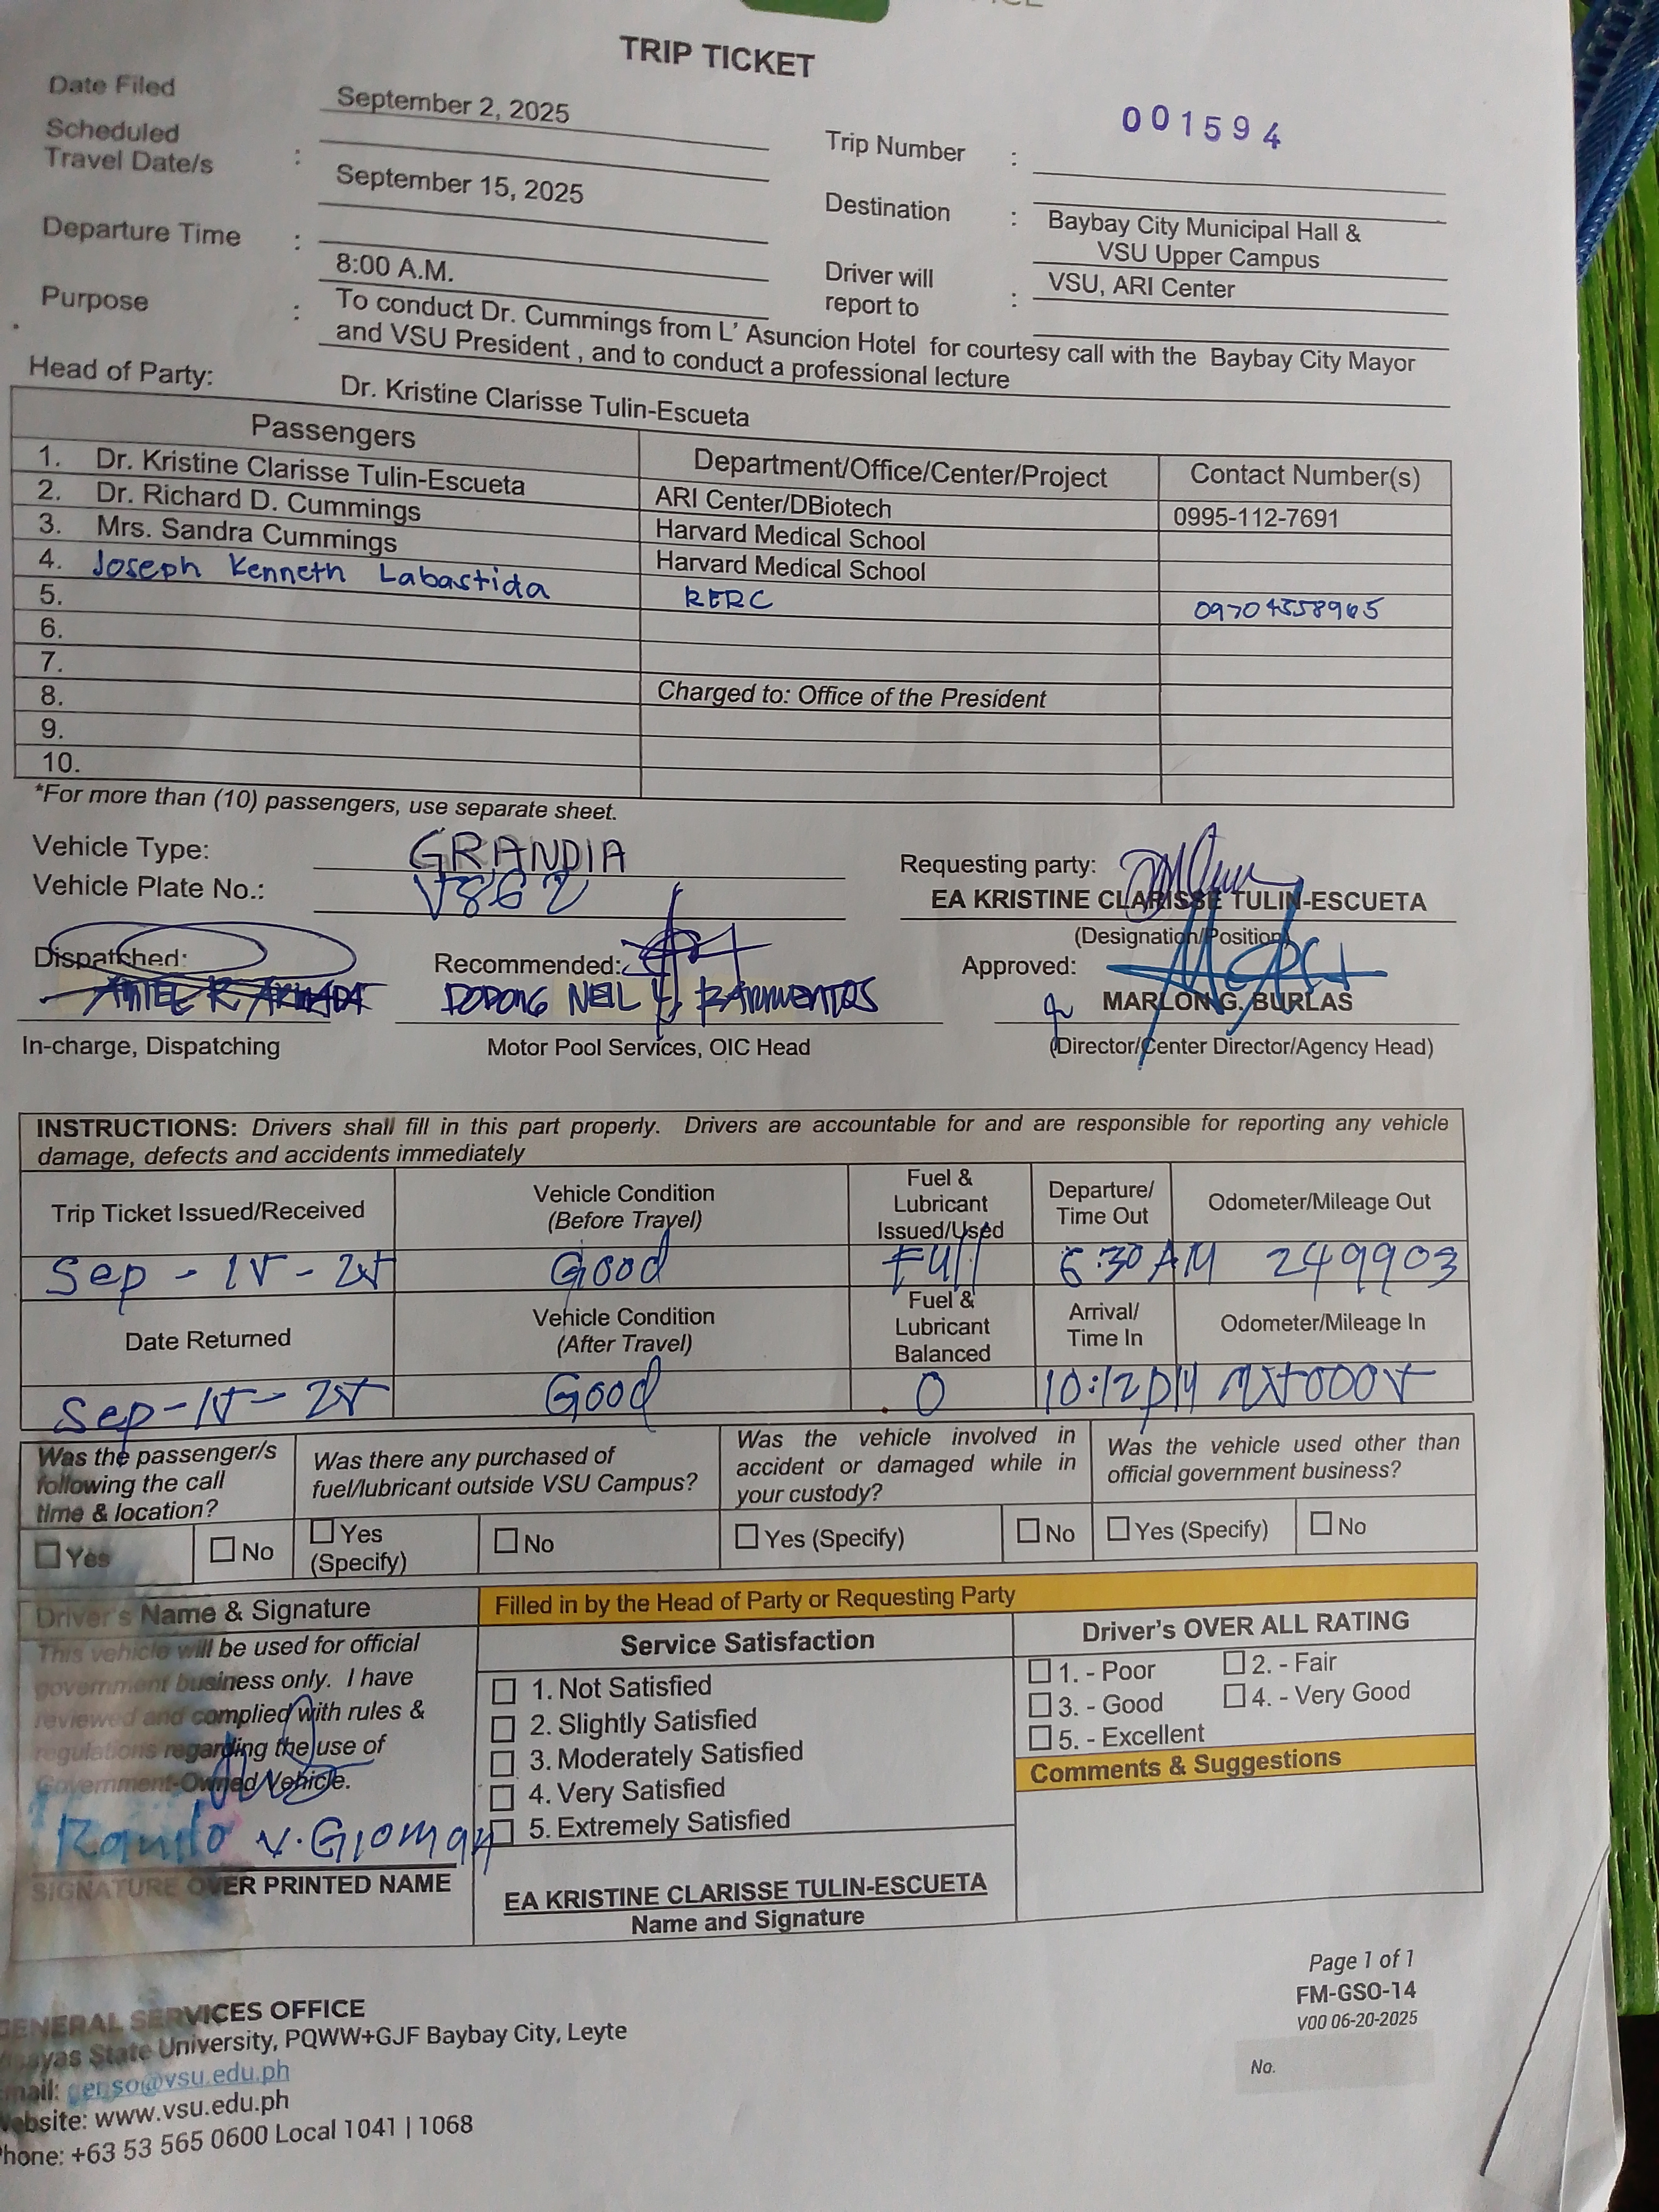 TRIP TICKET
Date Filed September 2, 2025
001594
Scheduled Travel Date/s : September 15, 2025
Trip Number :
Destination : Baybay City Municipal Hall &
VSU Upper Campus
Departure Time : 8:00 A.M.
Driver will report to : VSU, ARI Center
Purpose : To conduct Dr. Cummings from L' Asuncion Hotel for courtesy call with the Baybay City Mayor
and VSU President , and to conduct a professional lecture
Head of Party: Dr. Kristine Clarisse Tulin-Escueta
Passengers Department/Office/Center/Project Contact Number(s)
1. Dr. Kristine Clarisse Tulin-Escueta ARI Center/DBiotech 0995-112-7691
2. Dr. Richard D. Cummings Harvard Medical School
3. Mrs. Sandra Cummings Harvard Medical School
4. Joseph Kenneth Labastida RERC 09704558965
5.
6.
7.
8. Charged to: Office of the President
9.
10.
*For more than (10) passengers, use separate sheet.
Vehicle Type: GRANDIA
Requesting party:
Vehicle Plate No.: V862
EA KRISTINE CLARISSE TULIN-ESCUETA
(Designation/Position)
Dispatched: Recommended: Approved:
DODONG NEIL MARLON G. BURLAS
In-charge, Dispatching Motor Pool Services, OIC Head (Director/Center Director/Agency Head)
INSTRUCTIONS: Drivers shall fill in this part properly. Drivers are accountable for and are responsible for reporting any vehicle
damage, defects and accidents immediately
Trip Ticket Issued/Received Vehicle Condition (Before Travel) Fuel & Lubricant Issued/Used Departure/ Time Out Odometer/Mileage Out
Sep - 15 - 25 Good Full 6:30 AM 249903
Date Returned Vehicle Condition (After Travel) Fuel & Lubricant Balanced Arrival/ Time In Odometer/Mileage In
Sep-15-25 Good 0 10:12 PM
Was the passenger/s following the call time & location?
Was there any purchased of fuel/lubricant outside VSU Campus?
Was the vehicle involved in accident or damaged while in your custody?
Was the vehicle used other than official government business?
Yes No Yes (Specify) No Yes (Specify) No Yes (Specify) No
Driver's Name & Signature
This vehicle will be used for official
government business only. I have
reviewed and complied with rules &
regulations regarding the use of
Government-Owned Vehicle.
V. Gloman
SIGNATURE OVER PRINTED NAME
Filled in by the Head of Party or Requesting Party
Service Satisfaction
1. Not Satisfied
2. Slightly Satisfied
3. Moderately Satisfied
4. Very Satisfied
5. Extremely Satisfied
EA KRISTINE CLARISSE TULIN-ESCUETA
Name and Signature
Driver's OVER ALL RATING
1. - Poor 2. - Fair
3. - Good 4. - Very Good
5. - Excellent
Comments & Suggestions
Page 1 of 1
FM-GSO-14
V00 06-20-2025
No.
GENERAL SERVICES OFFICE
Visayas State University, PQWW+GJF Baybay City, Leyte
Email: genso@vsu.edu.ph
Website: www.vsu.edu.ph
Phone: +63 53 565 0600 Local 1041 | 1068